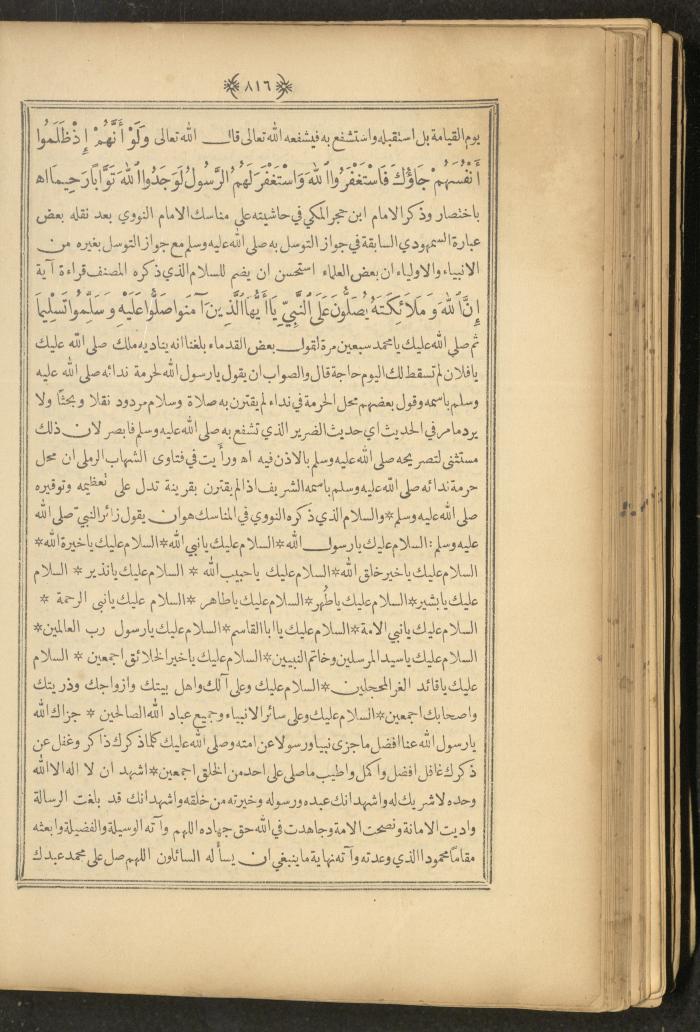 ٨١٦
يوم القيامة بل استقبله واستشفع به فيشفعه الله تعالى قال الله تعالى وَلَوْ أَنَّهُمْ إِذْ ظَلَمُوا
أَنْفُسَهُمْ جَاؤُكَ فَاسْتَغْفَرُوا اللهَ وَاسْتَغْفَرَ لَهُمُ الرَّسُولُ لَوَجَدُوا اللهَ تَوَّابًا رَحِيمًا اه
باختصار وذكر الامام ابن حجر المكي في حاشيته على مناسك الامام النووي بعد نقله بعض
عبارة السمهودي السابقة في جواز التوسل به صلى الله عليه وسلم مع جواز التوسل بغيره من
الانبياء والاولياء ان بعض العلماء استحسن ان يضم للسلام الذي ذكره المصنف قراءة آية
إِنَّ اللهَ وَمَلَائِكَتَهُ يُصَلُّونَ عَلَى النَّبِيِّ يَا أَيُّهَا الَّذِينَ آمَنُوا صَلُّوا عَلَيْهِ وَسَلِّمُوا تَسْلِيمًا
ثم صلى الله عليك يا محمد سبعين مرة لقول بعض القدماء بلغنا انه يناديه ملك صلى الله عليك
يا فلان لم تسقط لك اليوم حاجة قال والصواب ان يقول يا رسول الله لحرمة ندائه صلى الله عليه
وسلم باسمه وقول بعضهم محل الحرمة في نداء لم يقترن به صلاة وسلام مردود نقلا وبحثا ولا
يرد ما مر في الحديث اي حديث الضرير الذي تشفع به صلى الله عليه وسلم فابصر لان ذلك
مستثنى لتصريحه صلى الله عليه وسلم بالاذن فيه اه ورأيت في فتاوى الشهاب الرملي ان محل
حرمة ندائه صلى الله عليه وسلم باسمه الشريف اذا لم يقترن بقرينة تدل على تعظيمه وتوقيره
صلى الله عليه وسلم * والسلام الذي ذكره النووي في المناسك هو ان يقول زائر النبي صلى الله
عليه وسلم : السلام عليك يا رسول الله * السلام عليك يا نبي الله * السلام عليك يا خيرة الله *
السلام عليك يا خير خلق الله * السلام عليك يا حبيب الله * السلام عليك يا نذير * السلام
عليك يا بشير * السلام عليك يا طُهر * السلام عليك يا طاهر * السلام عليك يا نبي الرحمة *
السلام عليك يا نبي الامة * السلام عليك يا ابا القاسم * السلام عليك يا رسول رب العالمين *
السلام عليك يا سيد المرسلين وخاتم النبيين * السلام عليك يا خير الخلائق اجمعين * السلام
عليك يا قائد الغر المحجلين * السلام عليك وعلى آلك واهل بيتك وازواجك وذريتك
واصحابك اجمعين * السلام عليك وعلى سائر الانبياء وجميع عباد الله الصالحين * جزاك الله
يا رسول الله عنا افضل ما جزى نبيا ورسولا عن امته وصلى الله عليك كلما ذكرك ذاكر وغفل عن
ذكرك غافل افضل واكمل واطيب ما صلى على احد من الخلق اجمعين * اشهد ان لا اله الا الله
وحده لا شريك له واشهد انك عبده ورسوله وخيرته من خلقه واشهد انك قد بلغت الرسالة
واديت الامانة ونصحت الامة وجاهدت في الله حق جهاده اللهم وآته الوسيلة والفضيلة وابعثه
مقاما محمودا الذي وعدته وآته نهاية ما ينبغي ان يسأله السائلون اللهم صل على محمد عبدك